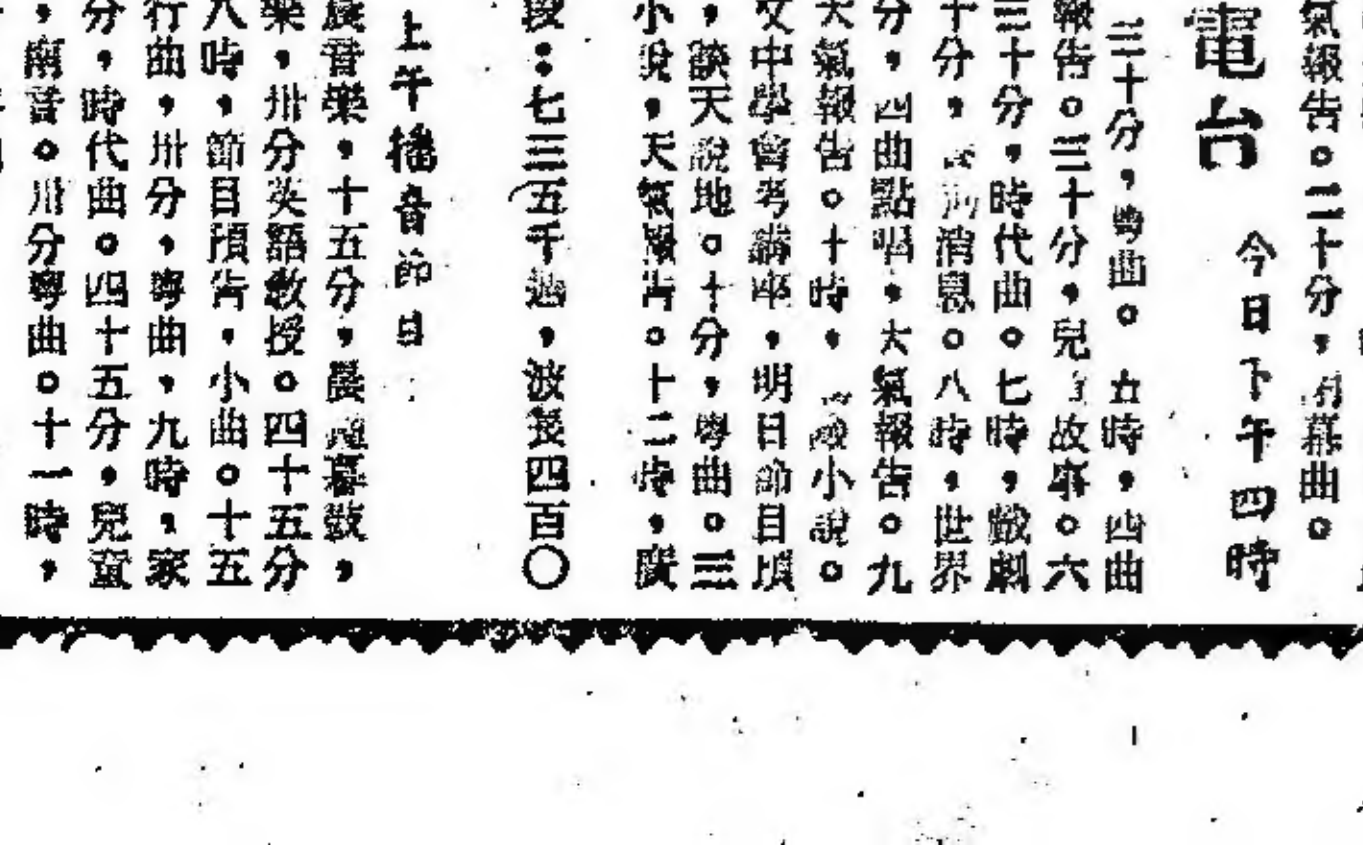 氣報告。二十分,閉幕曲。
電台 今日下午四時
三十分,粵曲。五時,四曲
報告。三十分,兒童故事。六
三十分,時代曲。七時,戲劇
十分,消息。八時,世界
分,四曲點唱,大氣報告。九
天氣報告。十時,小說。
文中學會考講座,明日節目預
,談天說地。十分,粵曲。三
小說,天氣報告。十二時,廣
段:七三五千週,波長四百〇
上午播音節目
晨音樂,十五分,晨操
樂,卅分英語教授。四十五分
八時,節目預告,小曲。十五
行曲,卅分,粵曲,九時,家
分,時代曲。四十五分,兒童
,南音。卅分粵曲。十一時,